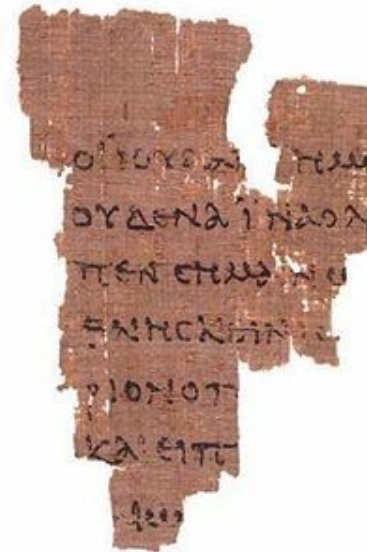 ΟΙ ΙΟΥΔΑΙ ΗΜ
ΟΥΔΕΝΑ ΙΝΑ Ο Λ
ΠΕΝ ΣΗΜΑΙΝΩ
ΘΝΗΣΚΕΙΝ
ΡΙΟΝ Ο Π
ΚΑΙ ΕΙΠ